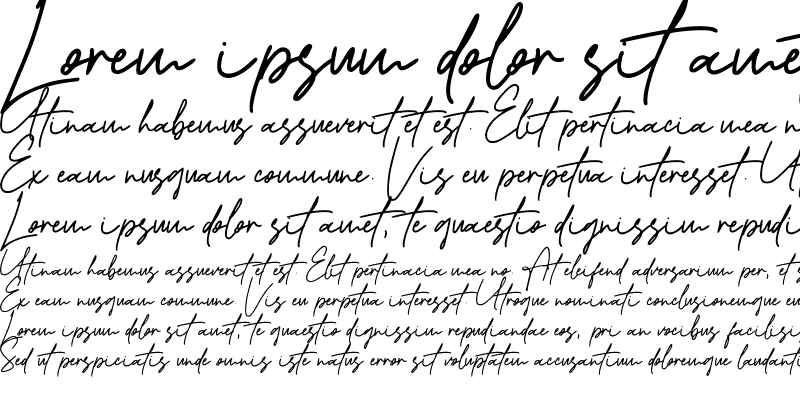 Lorem ipsum dolor sit ame
Utinam habemus assueverit et est. Elit pertinacia mea n
Ex eam nusquam commune. Vis eu perpetua interesset. U
Lorem ipsum dolor sit amet, te quaestio dignissim repudi
Utinam habemus assueverit et est. Elit pertinacia mea no. At eleifend adversarium per, et s
Ex eam nusquam commune. Vis eu perpetua interesset. Utroque nominati conclusionemque eu
Lorem ipsum dolor sit amet, te quaestio dignissim repudiandae eos, pri an vocibus facilisi
Sed ut perspiciatis unde omnis iste natus error sit voluptatem accusantium doloremque laudanti